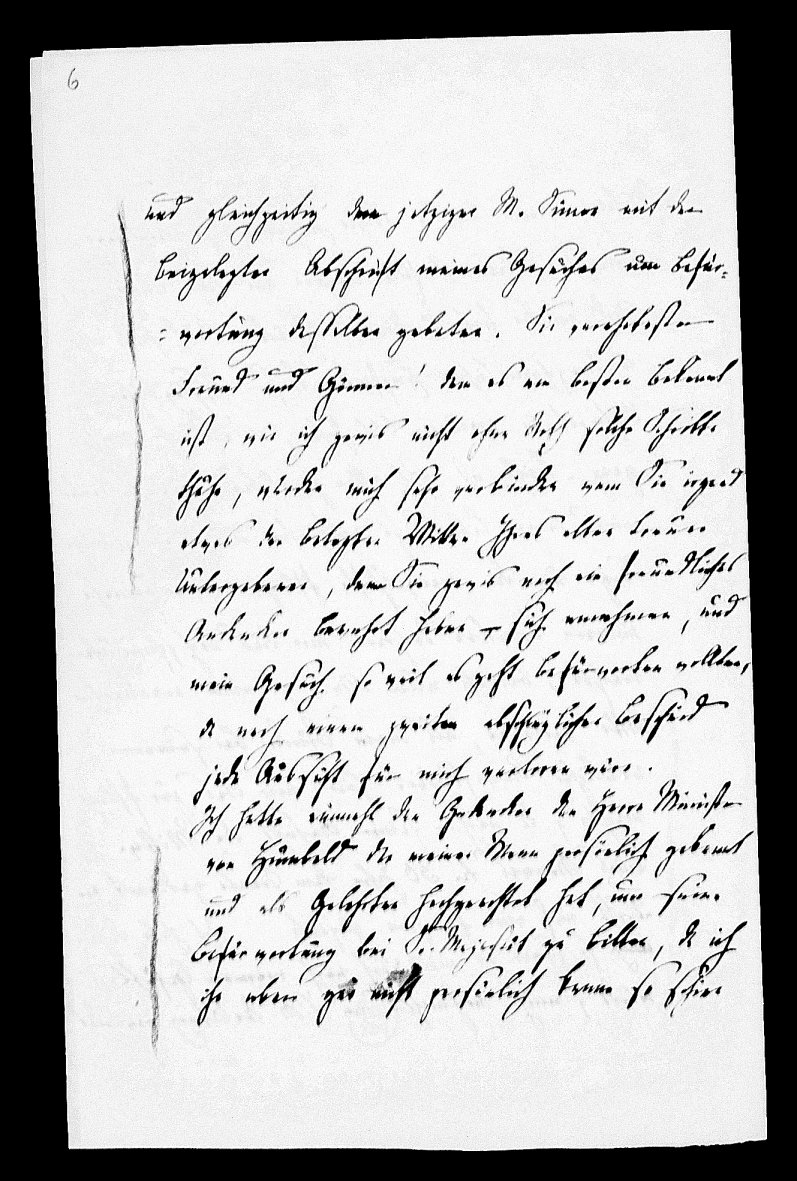 6
und gleichzeitig den jetzigen M. Simon mit der
beigelegten Abschrift meines Gesuches um befür-
=wortung desselben gebeten. Sie verehrtester
Freund und Gönner! dem es am besten bekannt
ist, wie ich gewis nicht ohne Noth solche Schritte
thuhe, würden mich sehr verbinden wenn Sie irgend
etwas der betagten Witwe Ihres alten treuen
Untergebenen, dem Sie gewis noch ein freundliches
Andenken bewahrt haben – sich annehmen, und
mein Gesuch so weit es geht befürworten wollten,
da nach einem zweiten abschlaglichen Bescheid
jede Aussicht für mich verloren wäre.
Ich hatte einmahl den Gedanken den Herrn Minister
von Humbold der meinen Mann persönlich gekannt
und als Gelehrten hochgeachtet hat, um seine
Befürwortung bei Sr. Majestät zu bitten, da ich
ihn aber gar nicht persönlich kenne so schien